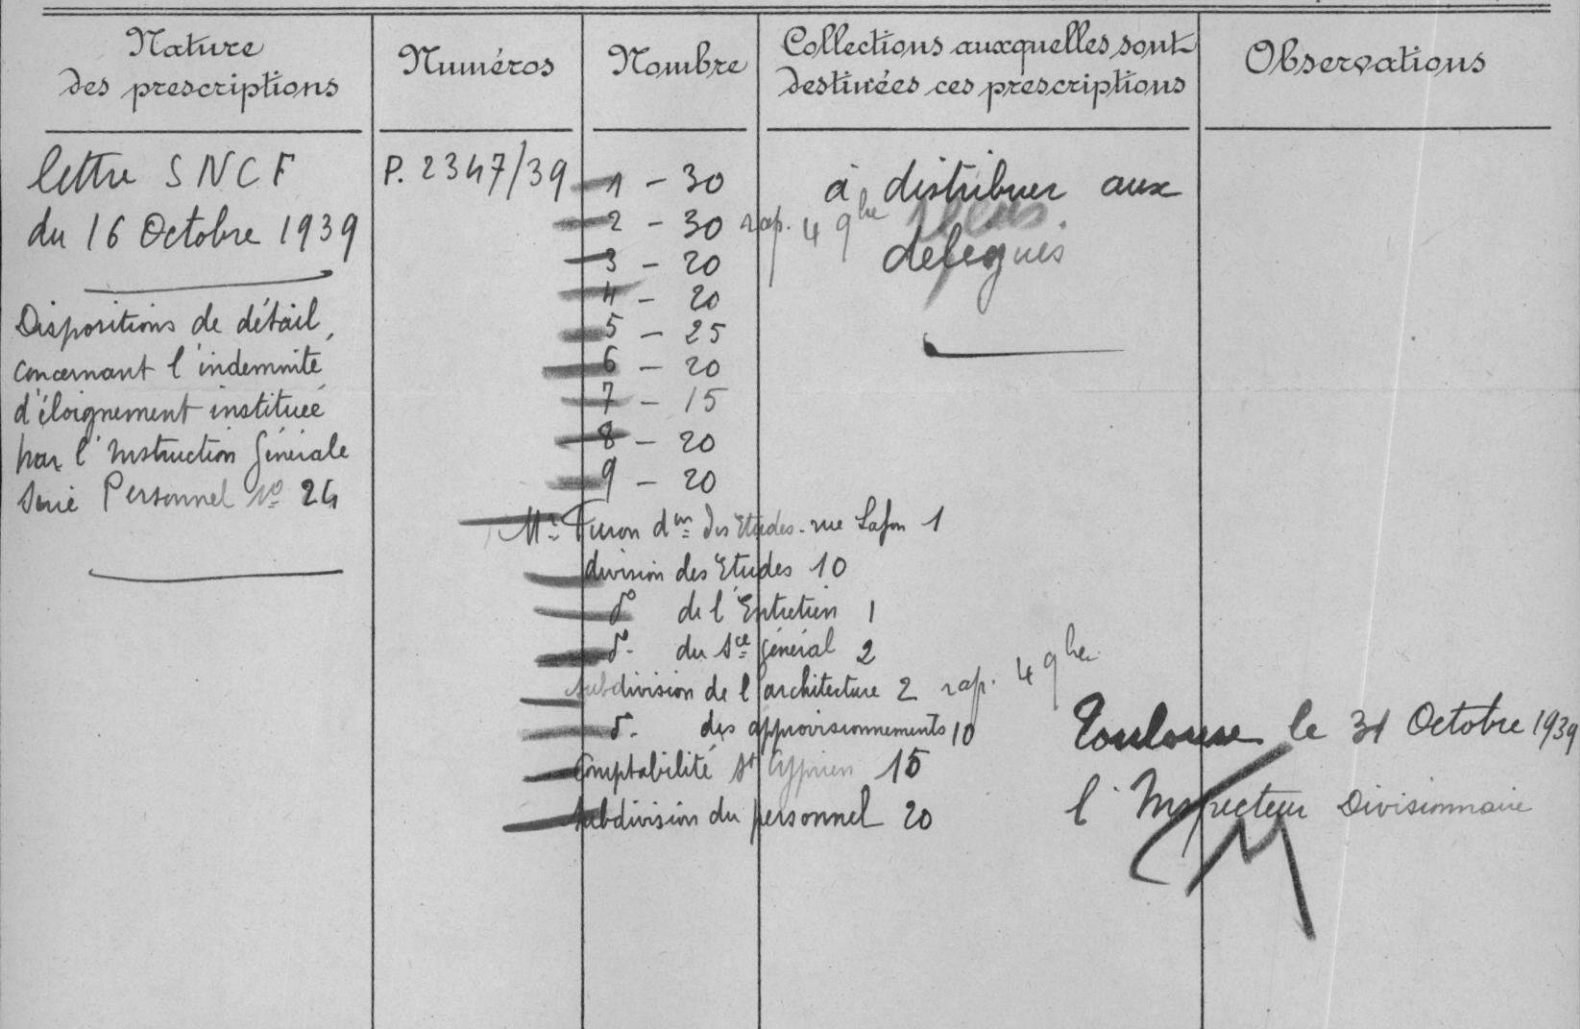 Nature
des prescriptions
Numéros
Nombre
Collections auxquelles sont
destinées ces prescriptions
Observations
lettre SNCF
du 16 Octobre 1939
Dispositions de détail,
concernant l'indemnité
d'éloignement instituée
par l'Instruction Générale
Série Personnel Nº 24
P. 2347/39
1 - 30
2 - 30 rap. 4 9bre
3 - 20
4 - 20
5 - 25
6 - 20
7 - 15
8 - 20
9 - 20
Mr don des Etudes - rue Lafon 1
division des Etudes 10
do de l'Entretien 1
do du Sce Général 2
subdivision de l'architecture 2 rap. 4 9bre
do des approvisionnements 10
Comptabilité St Cyprien 15
Subdivision du personnel 20
à distribuer aux
délégués
Toulouse le 31 Octobre 1939
l'Inspecteur Divisionnaire